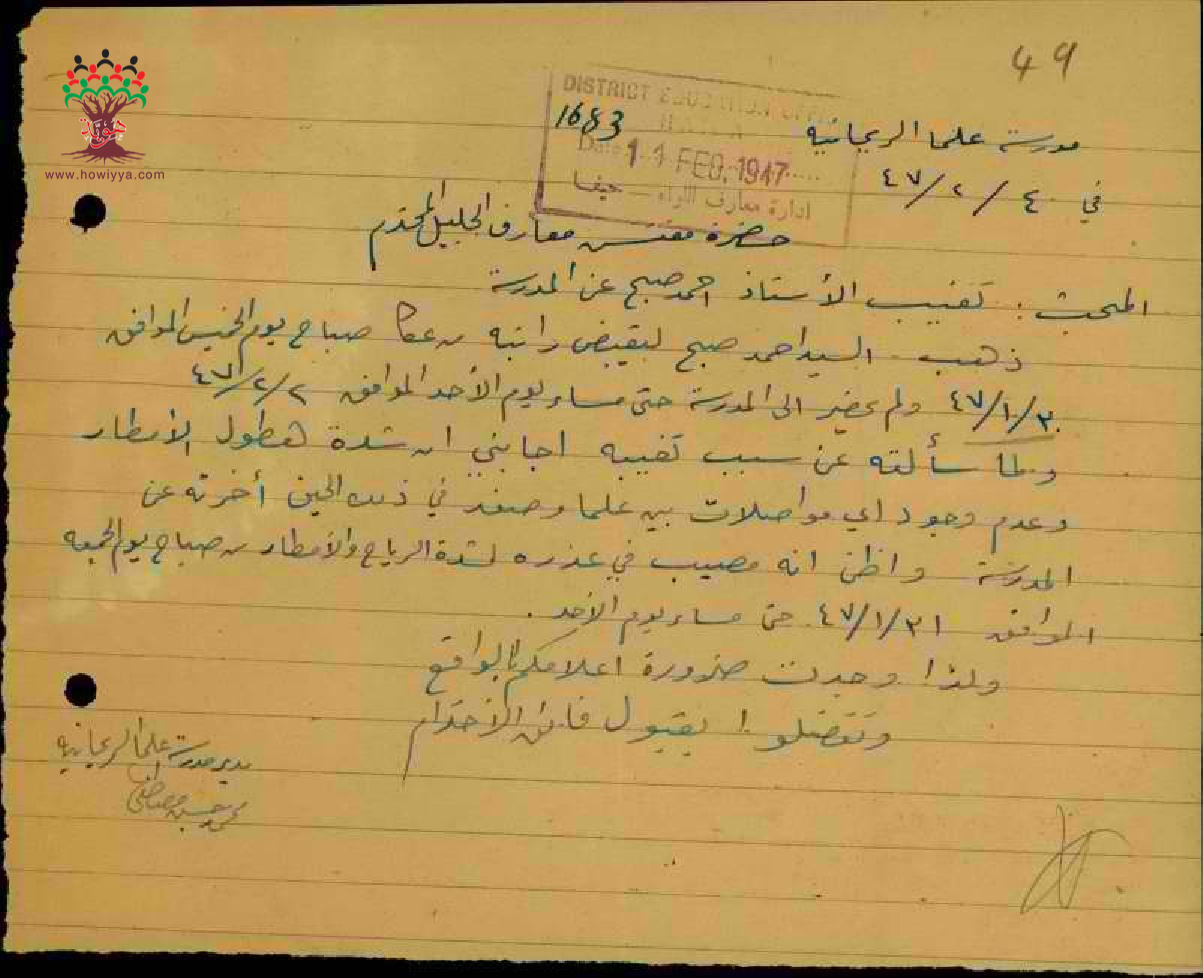 49
مدرسة علما الريحانية
في ٤ / ٢ / ٤٧
DISTRICT EDUCATION OFFICE
HAIFA
1683
Date 11 FEB. 1947
ادارة معارف اللواء – حيفا
هوية
www.howiyya.com
حضرة مفتش معارف الجليل المحترم
المبحث : تغيب الأستاذ احمد صبح عن المدرسة
ذهب السيد احمد صبح ليقبض راتبه من عكا صباح يوم الخميس الموافق
٤٧/١/٣٠ ولم يحضر الى المدرسة حتى مساء يوم الأحد الموافق ٤٧/٢/٢
ولما سألته عن سبب تغيبه اجابني ان شدة هطول الأمطار
وعدم وجود اي مواصلات بين علما وصفد في ذلك الحين أخرته عن
المدرسة واظن انه مصيب في عذره لشدة الرياح والأمطار من صباح يوم الجمعه
الموافق ٤٧/١/٣١ حتى مساء يوم الأحد.
ولذا وجدت ضرورة اعلامكم بالواقع
وتفضلوا بقبول فائق الاحترام
مدير مدرسة علما الريحانية
محمد حسين